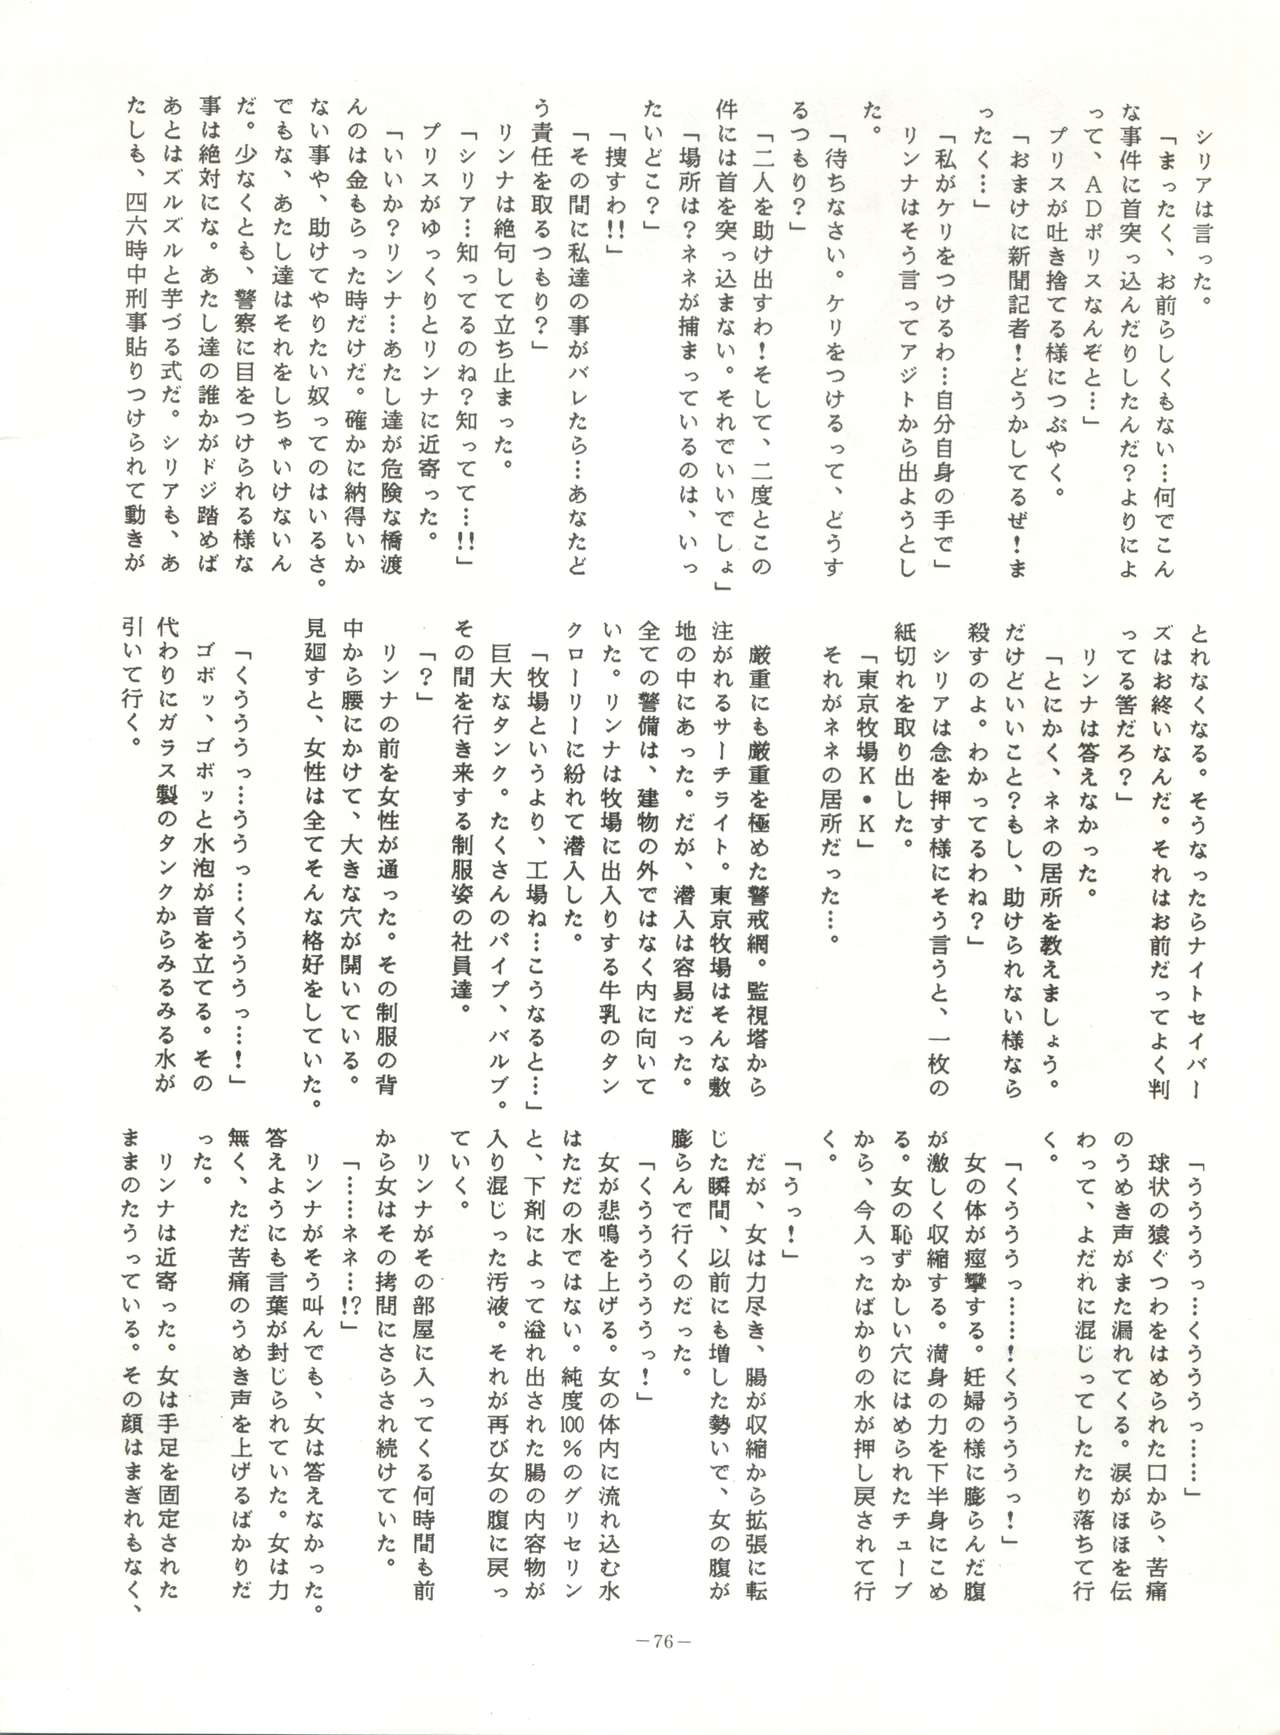 シリアは言った。
「まったく、お前らしくもない…何でこん
な事件に首突っ込んだりしたんだ？よりによ
って、ＡＤポリスなんぞと…」
プリスが吐き捨てる様につぶやく。
「おまけに新聞記者！どうかしてるぜ！ま
ったく…」
「私がケリをつけるわ…自分自身の手で」
リンナはそう言ってアジトから出ようとし
た。
「待ちなさい。ケリをつけるって、どうす
るつもり？」
「二人を助け出すわ！そして、二度とこの
件には首を突っ込まない。それでいいでしょ」
「場所は？ネネが捕まっているのは、いっ
たいどこ？」
「捜すわ!!」
「その間に私達の事がバレたら…あなたど
う責任を取るつもり？」
リンナは絶句して立ち止まった。
「シリア…知ってるのね？知ってて…!!」
プリスがゆっくりとリンナに近寄った。
「いいか？リンナ…あたし達が危険な橋渡
んのは金もらった時だけだ。確かに納得いか
ない事や、助けてやりたい奴ってのはいるさ。
でもな、あたし達はそれをしちゃいけないん
だ。少なくとも、警察に目をつけられる様な
事は絶対にな。あたし達の誰かがドジ踏めば
あとはズルズルと芋づる式だ。シリアも、あ
たしも、四六時中刑事貼りつけられて動きが
とれなくなる。そうなったらナイトセイバー
ズはお終いなんだ。それはお前だってよく判
ってる筈だろ？」
リンナは答えなかった。
「とにかく、ネネの居所を教えましょう。
だけどいいこと？もし、助けられない様なら
殺すのよ。わかってるわね？」
シリアは念を押す様にそう言うと、一枚の
紙切れを取り出した。
「東京牧場Ｋ・Ｋ」
それがネネの居所だった…。
厳重にも厳重を極めた警戒網。監視塔から
注がれるサーチライト。東京牧場はそんな敷
地の中にあった。だが、潜入は容易だった。
全ての警備は、建物の外ではなく内に向いて
いた。リンナは牧場に出入りする牛乳のタン
クローリーに紛れて潜入した。
「牧場というより、工場ね…こうなると…」
巨大なタンク。たくさんのパイプ、バルブ。
その間を行き来する制服姿の社員達。
「？」
リンナの前を女性が通った。その制服の背
中から腰にかけて、大きな穴が開いている。
見廻すと、女性は全てそんな格好をしていた。
「くううう っ…ううっ…くうううっ…！」
ゴボッ、ゴボッと水泡が音を立てる。その
代わりにガラス製のタンクからみるみる水が
引いて行く。
「うううう っ…くうううっ……」
球状の猿ぐつわをはめられた口から、苦痛
のうめき声がまた漏れてくる。涙がほほを伝
わって、よだれに混じってしたたり落ちて行
く。
「くうううっ……！くううううっ！」
女の体が痙攣する。妊婦の様に膨らんだ腹
が激しく収縮する。満身の力を下半身にこめ
る。女の恥ずかしい穴にはめられたチューブ
から、今入ったばかりの水が押し戻されて行
く。
「うっ！」
だが、女は力尽き、腸が収縮から拡張に転
じた瞬間、以前にも増した勢いで、女の腹が
膨らんで行くのだった。
「くうううううっ！」
女が悲鳴を上げる。女の体内に流れ込む水
はただの水ではない。純度100％のグリセリン
と、下剤によって溢れ出された腸の内容物が
入り混じった汚液。それが再び女の腹に戻っ
ていく。
リンナがその部屋に入ってくる何時間も前
から女はその拷問にさらされ続けていた。
「……ネネ…!?」
リンナがそう叫んでも、女は答えなかった。
答えようにも言葉が封じられていた。女は力
無く、ただ苦痛のうめき声を上げるばかりだ
った。
リンナは近寄った。女は手足を固定された
ままのたうっている。その顔はまぎれもなく、
－76－